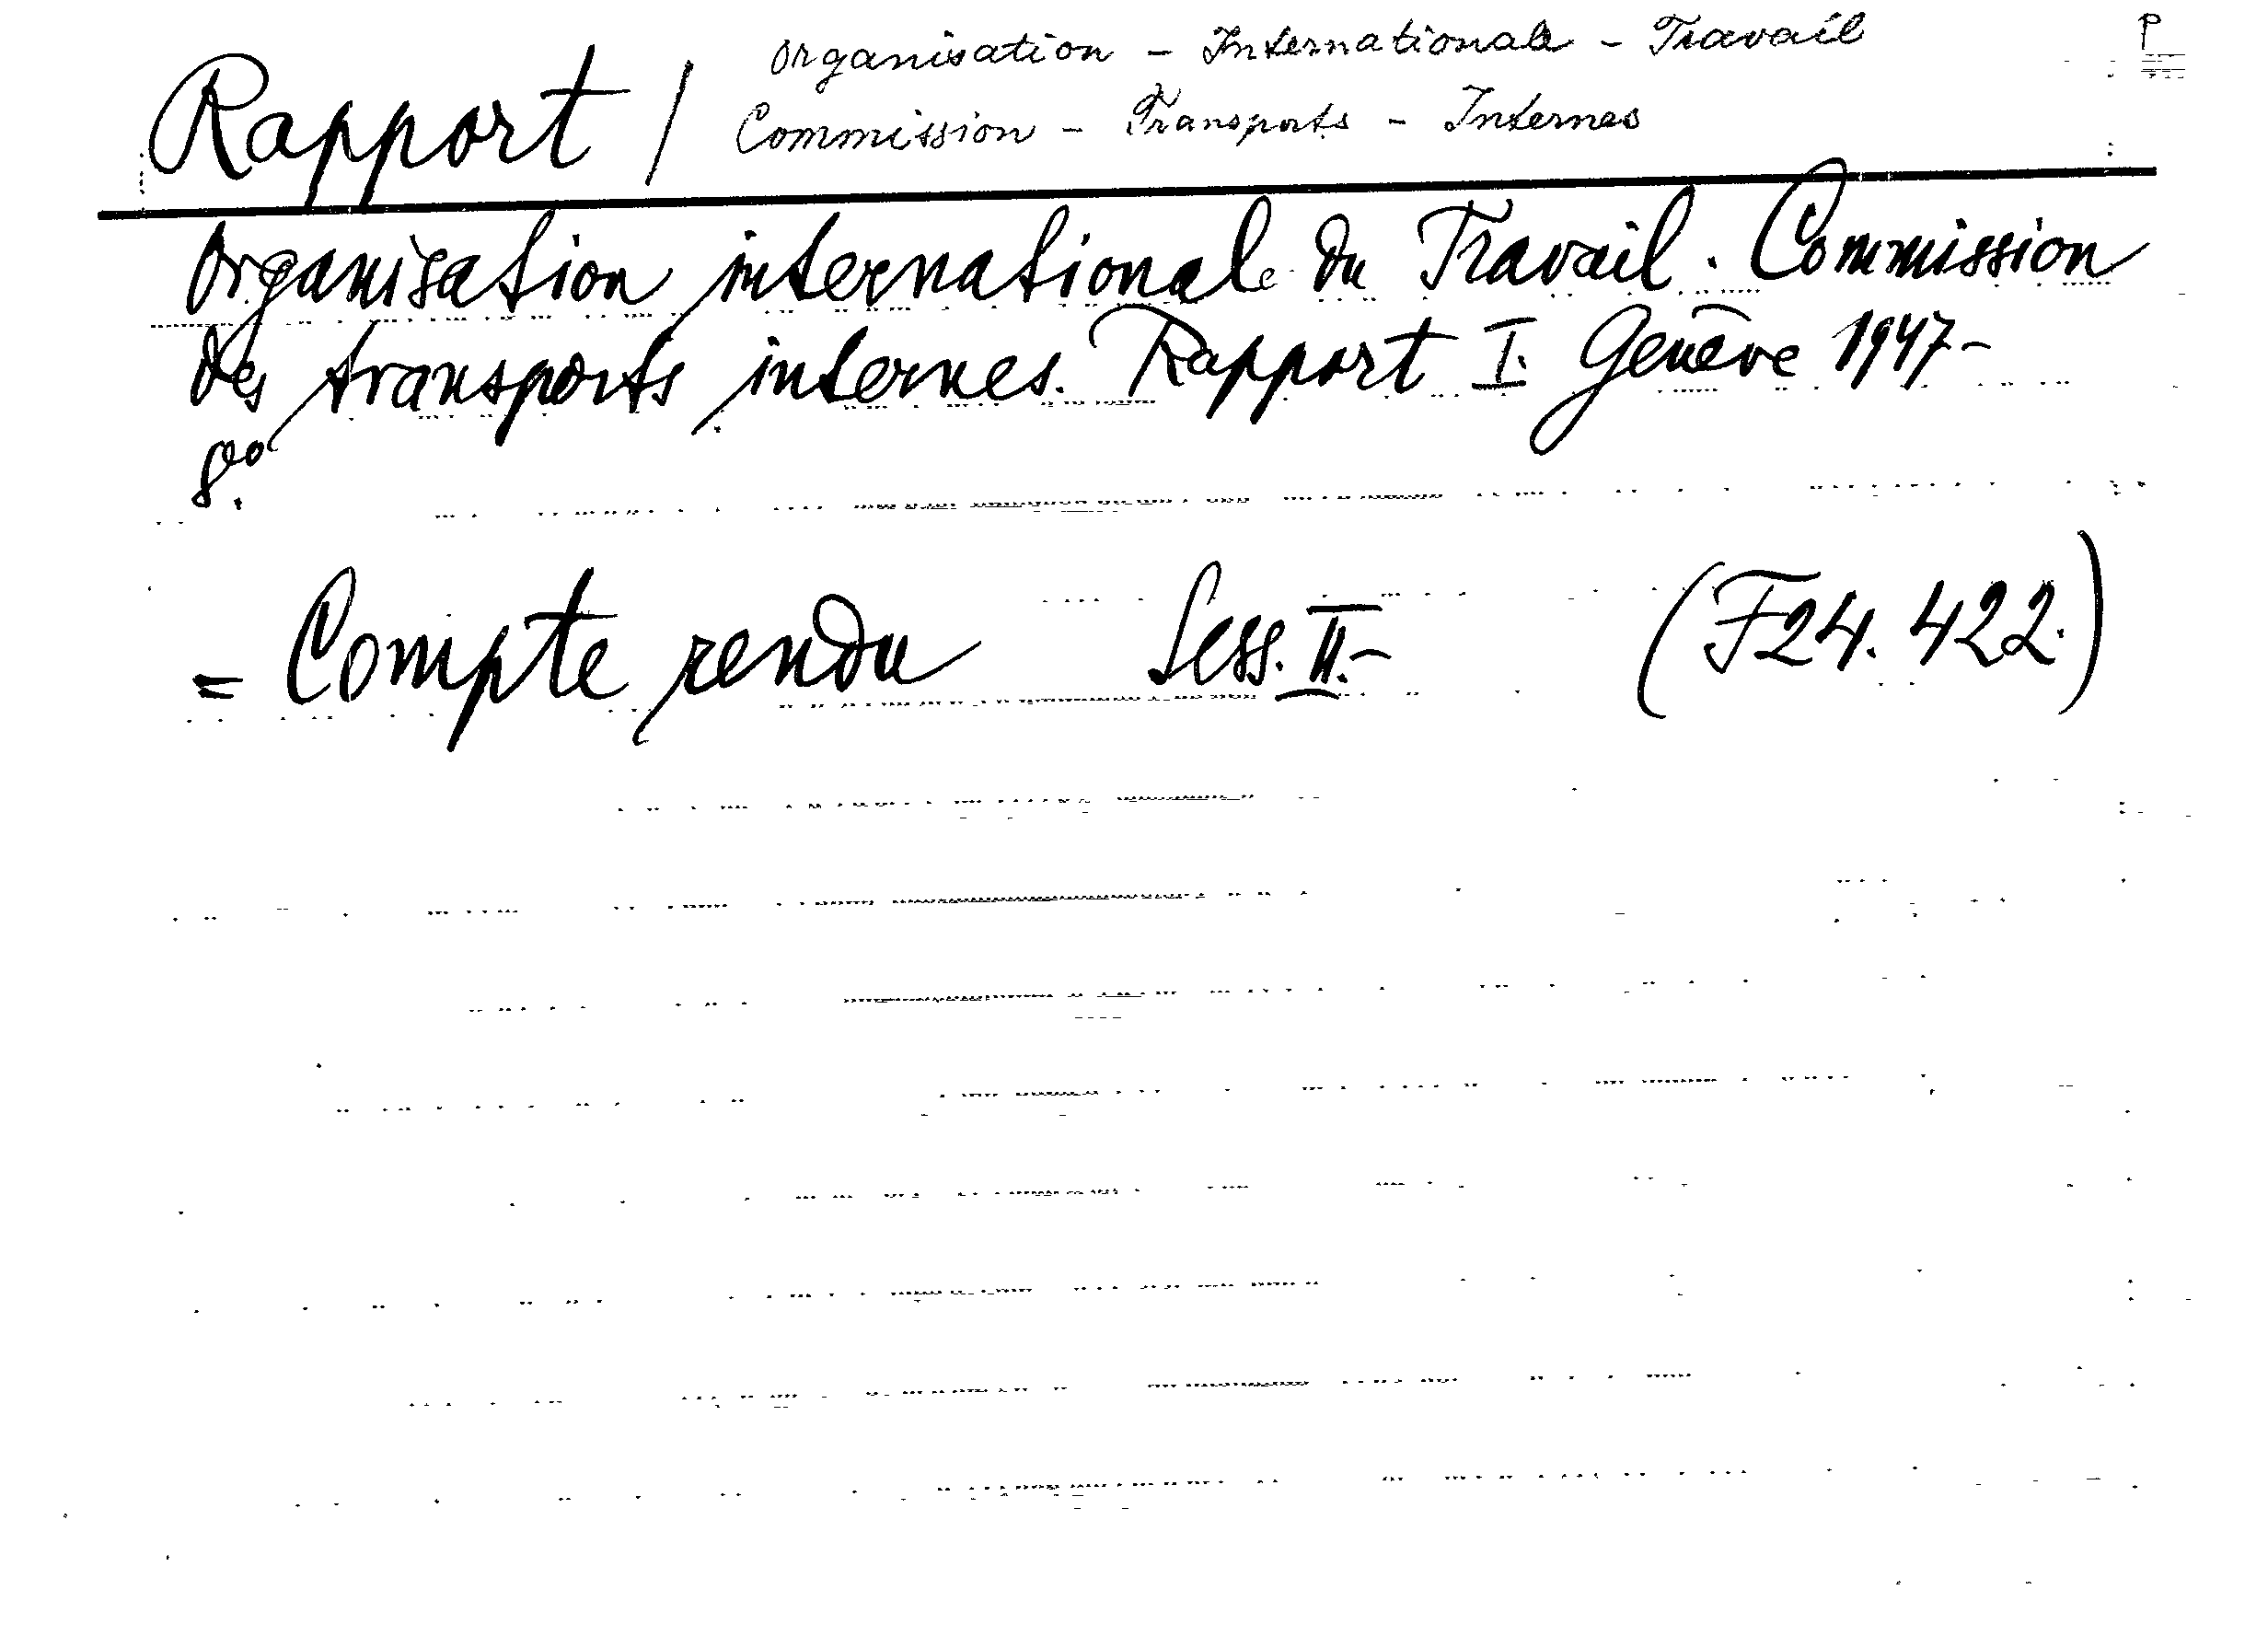 Organisation - Internationale - Travail P
Rapport / Commission - Transports - Internes
Organisation internationale du Travail. Commission
des transports internes. Rapport I. Genève 1947-
8º.
= Compte rendu Sess. II.- (F24.422.)